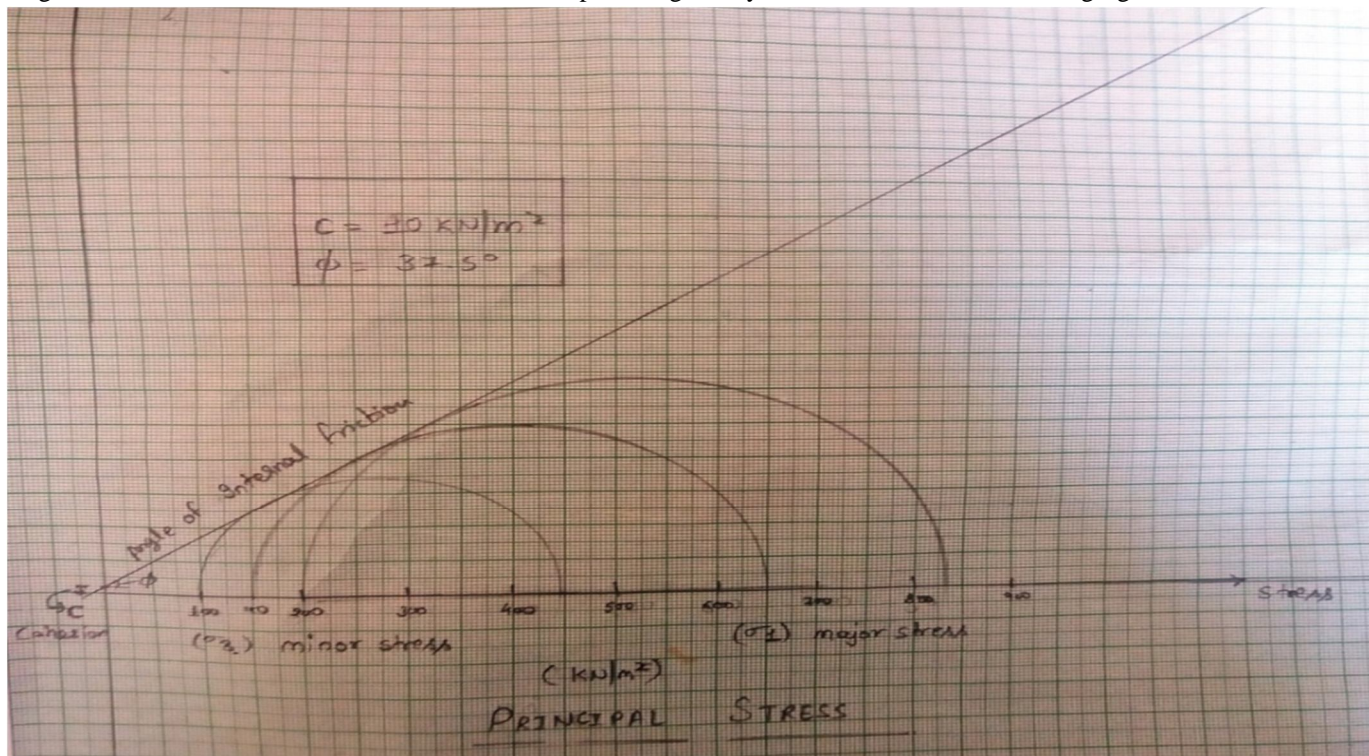 C = 10 KN/m²
ϕ = 37.5°
Angle of Internal friction
ϕ
C
Cohesion
100 200 300 400 500 600 700 800 900
Stress
minor stress
(σ1) major stress
(KN/m²)
PRINCIPAL STRESS